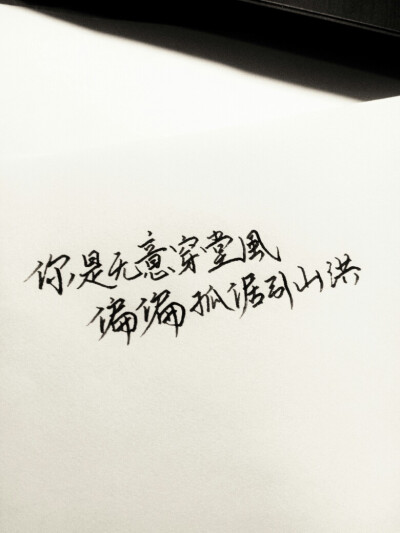 你是无意穿堂風
偏偏孤倨引山洪